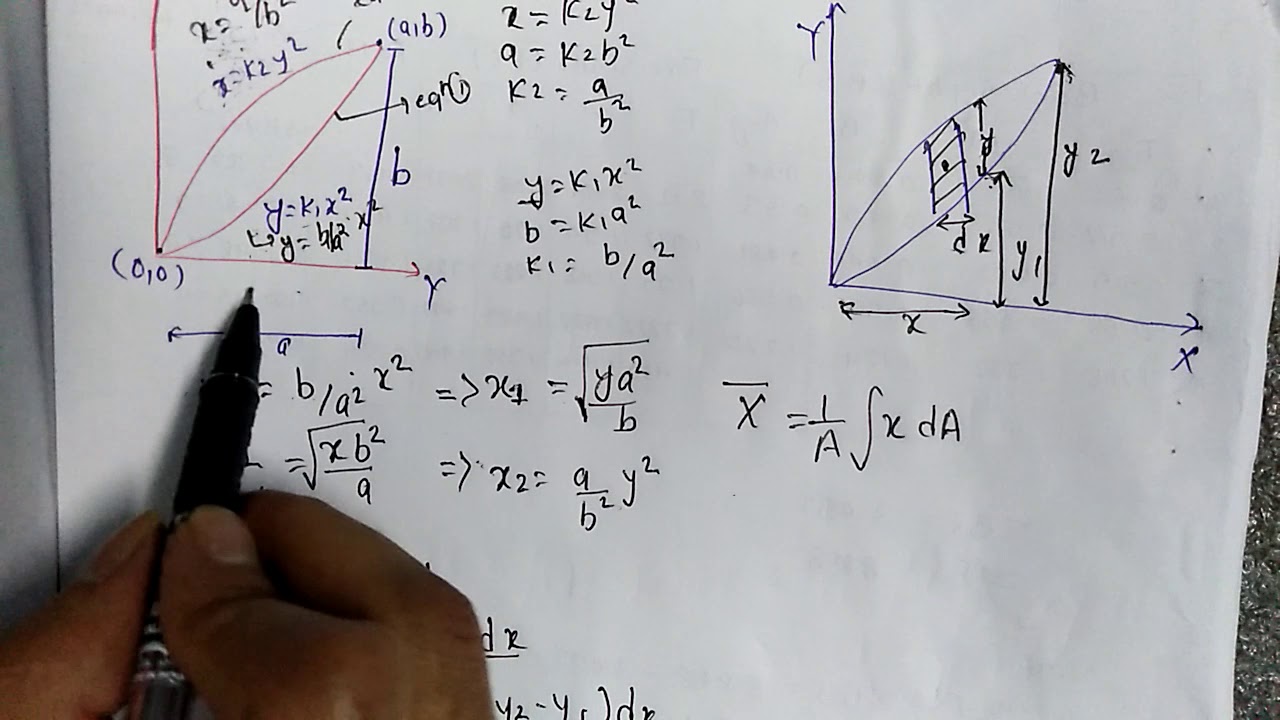 x = a/b²
x = k₂y²
(a,b)
eqⁿ①
b
y = k₁x²
↳ y = b/a² x²
(0,0)
Y
a
x = k₂y²
a = k₂b²
k₂ = a/b²
y = k₁x²
b = k₁a²
k₁ = b/a²
Y
y
y₂
dx
y₁
x
X
= b/a² x² => x₁ = √(ya²/b)
= √(xb²/a) => x₂ = a/b² y²
X̄ = 1/A ∫ x dA
dx
y₂ - y₁) dx